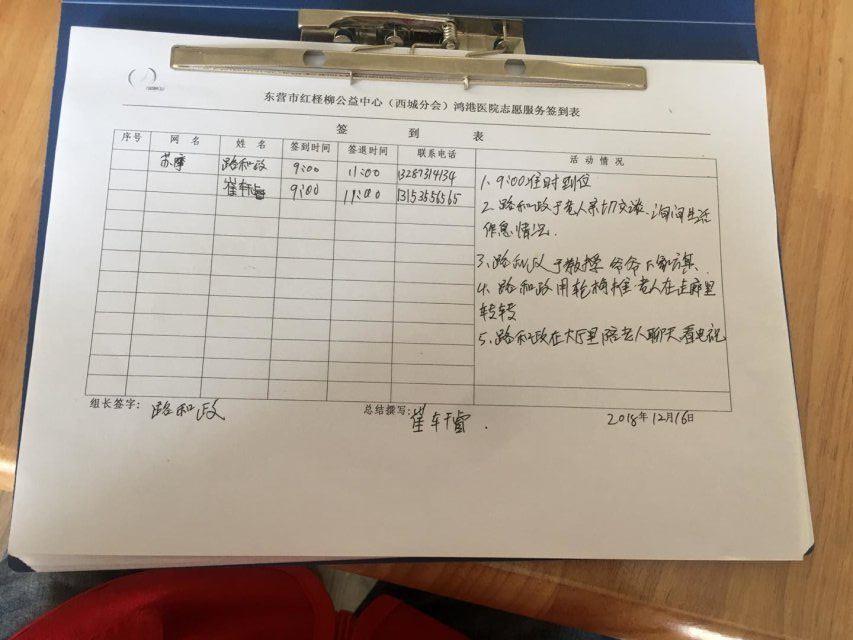 东营市红柽柳公益中心（西城分会）鸿港医院志愿服务签到表
签 到 表
序号 网 名 姓 名 签到时间 签退时间 联系电话 活 动 情 况
苏摩 路和政 9:00 11:00 13287314134
崔轩睿 9:00 11:00 13153556565
1、9:00准时到位
2、路和政于老人亲切交谈、询问生活
作息情况.
3、路和政于教授 爷爷下象棋.
4、路和政用轮椅推老人在走廊里
转转
5、路和政在大厅里陪老人聊天看电视
组长签字： 路和政 总结撰写： 崔轩睿. 2018年12月16日